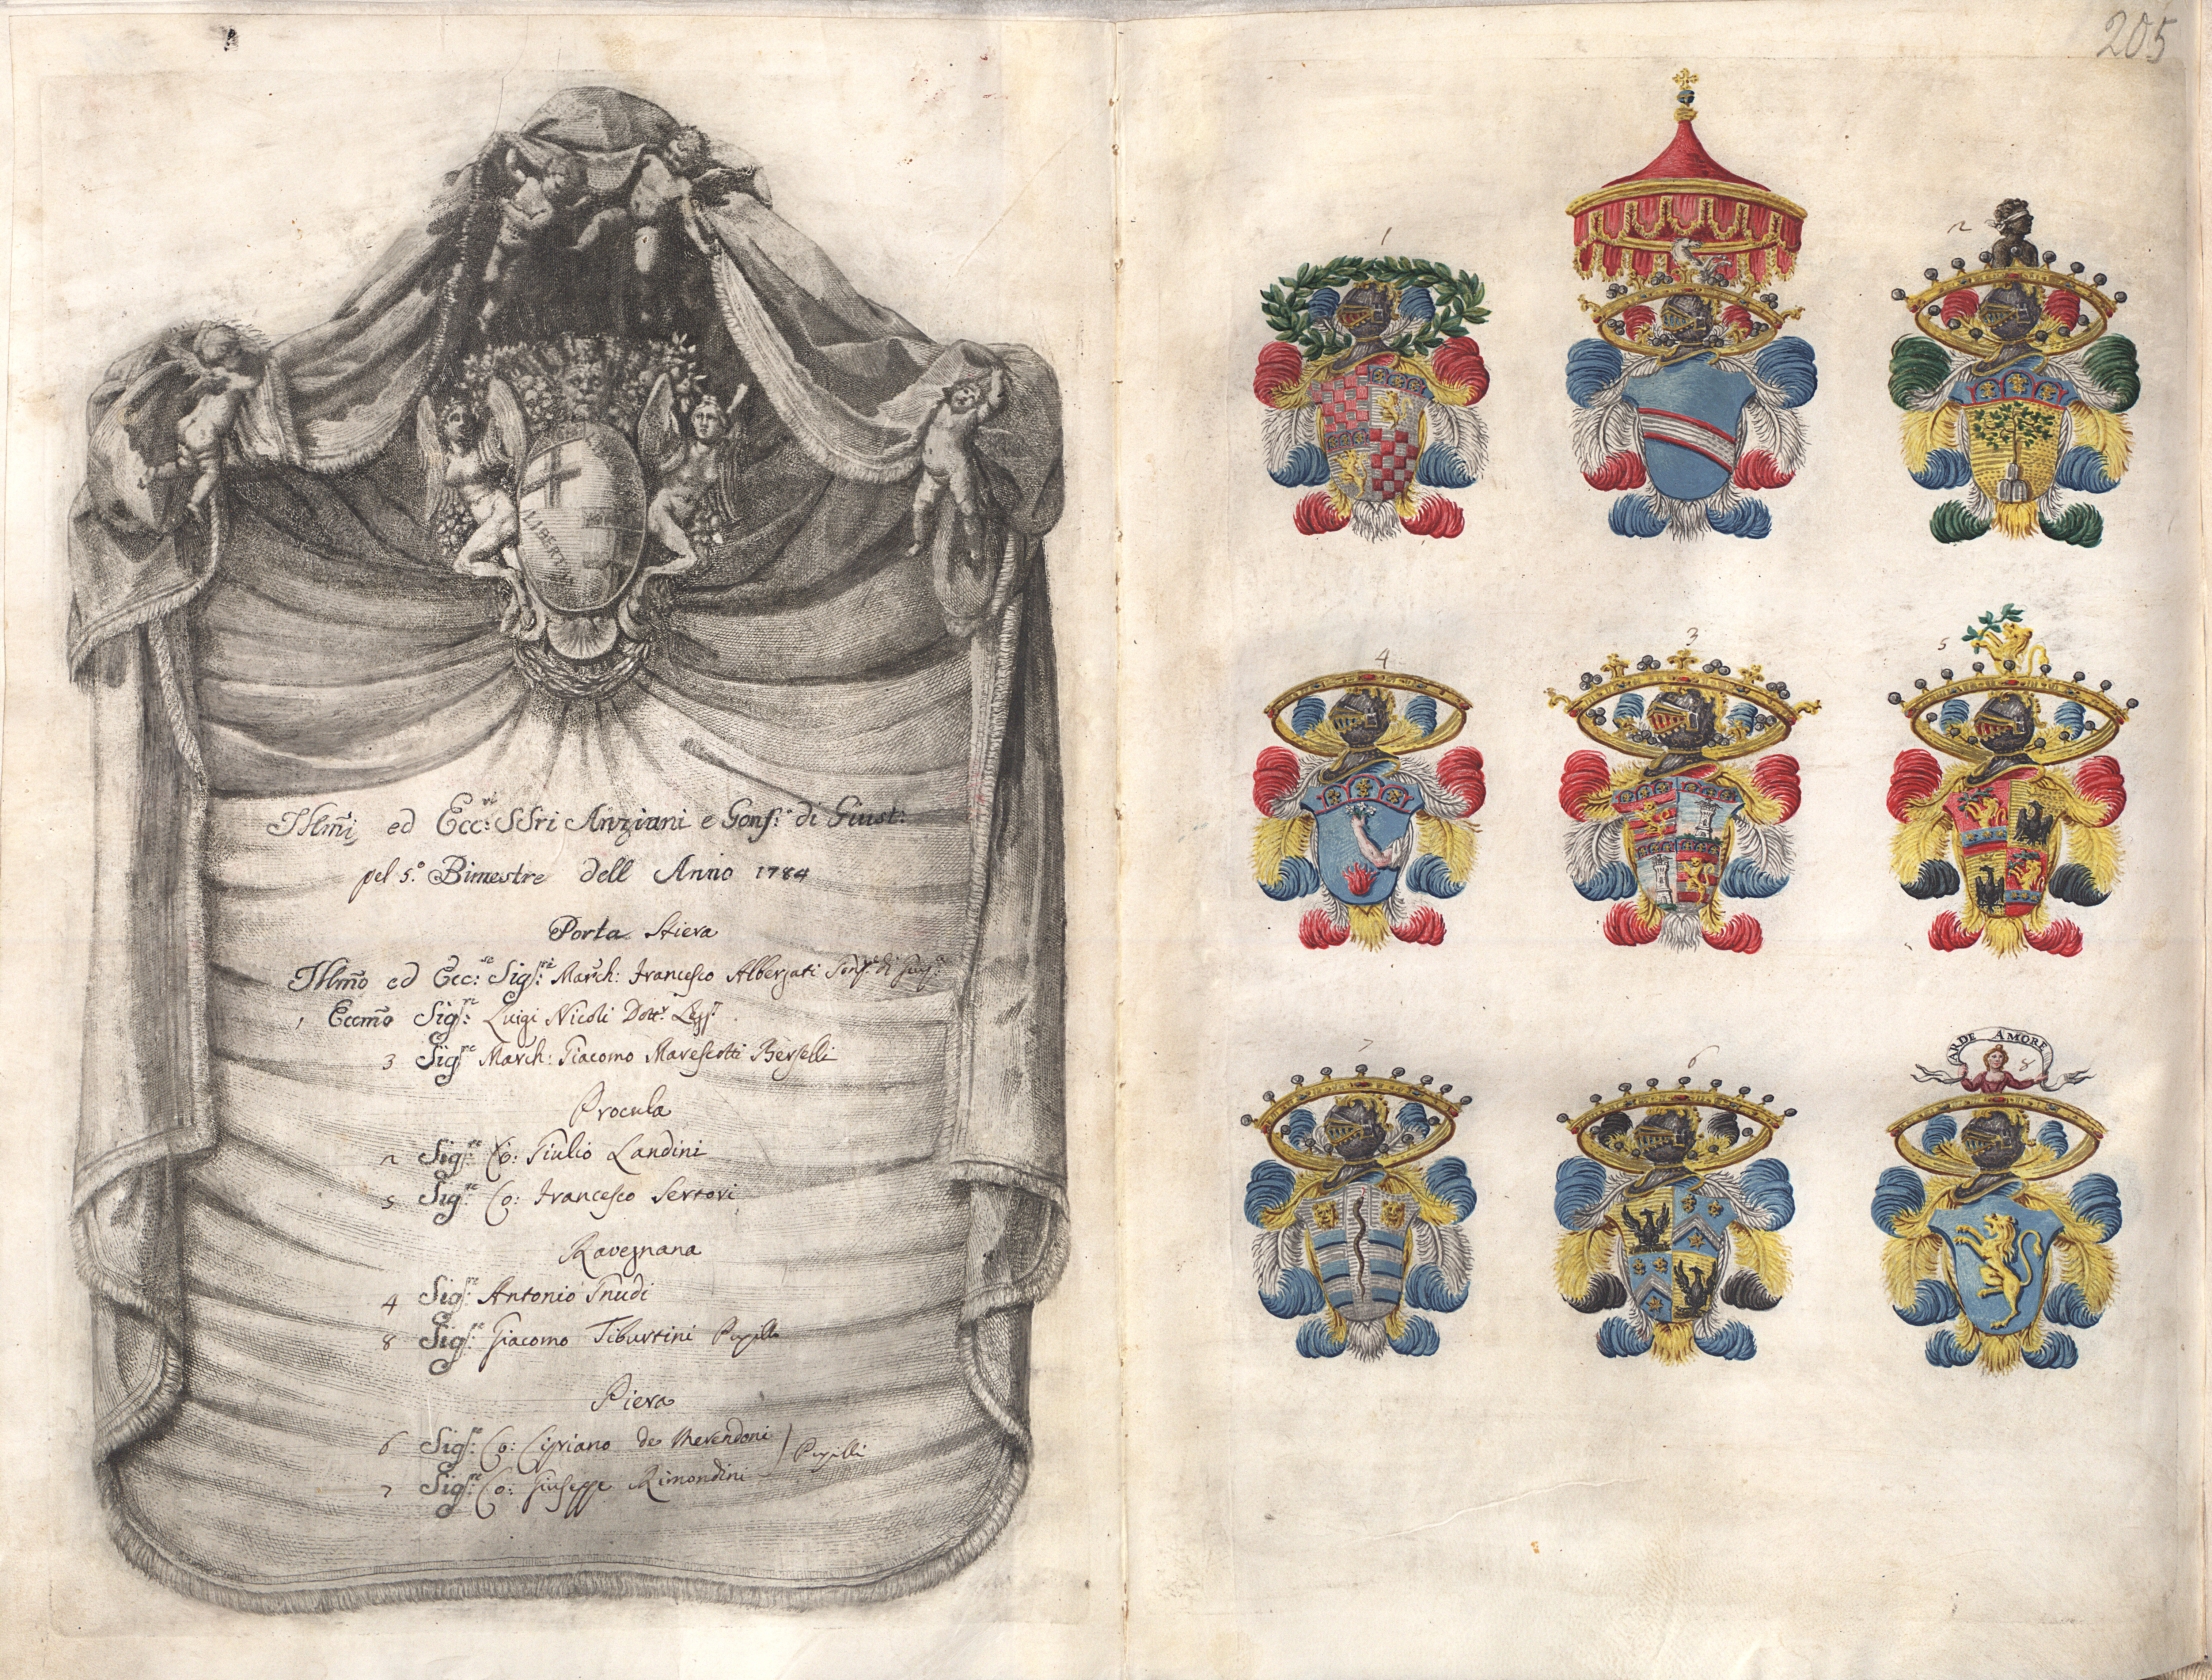 LIBERTAS
Illmi ed Ecc:vi SSri Anziani e Gonf: di Giust:
pel 5.º Bimestre dell Anno 1784
Porta Stiera
Illmo ed Ecc:se Sigf:re March: Francesco Albergati Gonf:re di
1 Eccmo Sigf:re Luigi Nicoli Dott:r Legg:
3 Sigf:re March: Giacomo Marescotti Berselli
Procula
2 Sigf:re Co: Giulio Landini
5 Sigf:re Co: Francesco Sertori
Ravegnana
4 Sigf:re Antonio Gnudi
8 Sigf:re Giacomo Tiburtini Pupillo
Piera
6 Sigf:re Co: Cipriano de Merendoni
7 Sigf:re Co: Giuseppe Rimondini
Pupilli
205
1
2
4
3
5
7
6
ARDE AMORE
8